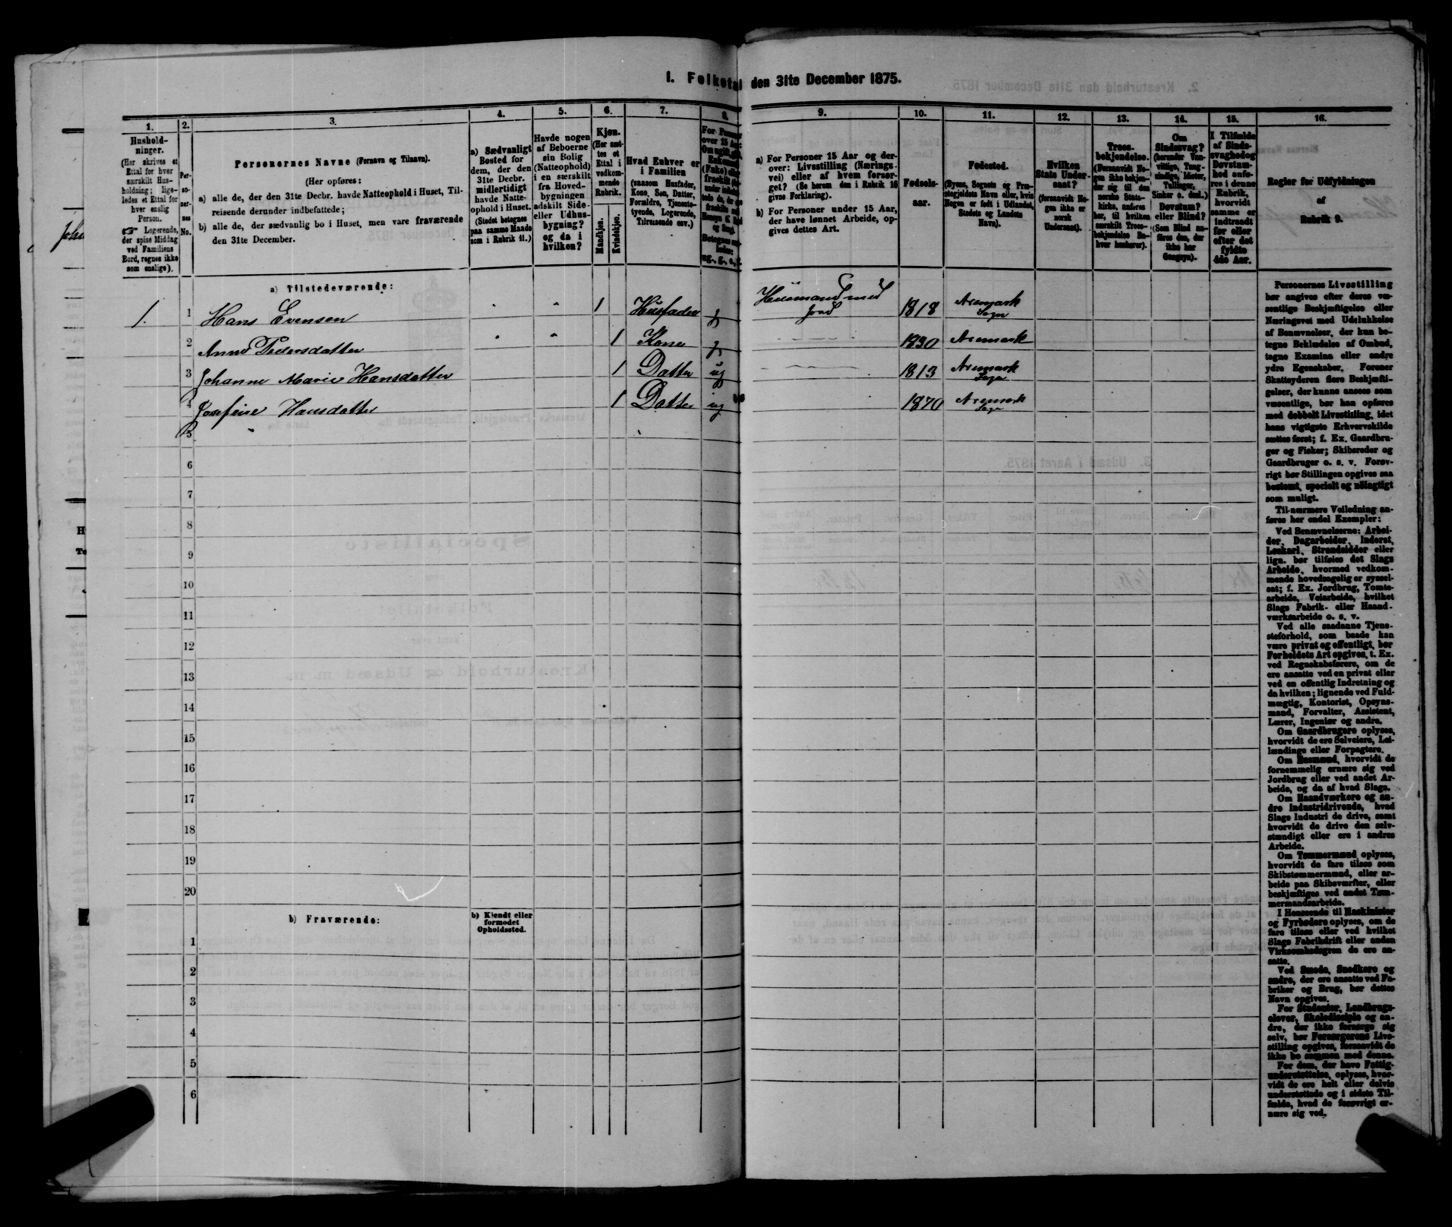 I. Folketal den 31te December 1875.
1.
Hushold-
ninger.
(Her skrives et
Ettal for hver
særskilt Hus-
holdning; lige-
ledes et Ettal for
hver enslig
Person.
Logerende,
der spise Middag
ved Familiens
Bord, regnes ikke
som enslige).
2.
Per-
so-
ner-
nes
No.
3.
Personernes Navne (Fornavn og Tilnavn).
(Her opføres:
a) alle de, der den 31te Decbr. havde Natteophold i Huset, Til-
reisende derunder indbefattede;
b) alle de, der sædvanlig bo i Huset, men vare fraværende
den 31te December.
4.
a) Sædvanligt
Bosted for
dem, der den
31te Decbr.
midlertidigt
havde Natte-
ophold i Huset.
(Stedet betegnes
paa samme Maade
som i Rubrik 11.)
5.
Havde nogen
af Beboerne
sin Bolig
(Natteophold)
i en særskilt
fra Hoved-
bygningen
adskilt Side-
eller Udhus-
bygning?
og da i
hvilken?
6.
Kjøn.
(Her sæt-
tes et
Ettal i
vedkom-
mende
Rubrik.
Mandkjøn.
Kvindekjøn.
7.
Hvad Enhver er
i Familien
(saasom Husfader,
Kone, Søn, Datter,
Forældre, Tjeneste-
tyende, Logerende,
Tilreisende osv.)
8.
9.
a) For Personer 15 Aar og der-
over: Livsstilling (Nærings-
vei) eller af hvem forsør-
get? (Se herom den i Rubrik 16
givne Forklaring).
b) For Personer under 15 Aar,
der have lønnet Arbeide, op-
gives dettes Art.
10.
Fødsels-
aar.
11.
Fødested.
(Byens, Sognets og Præ-
stegjeldets Navn eller, hvis
Nogen er født i Udlandet,
Stedets og Landets
Navn).
12.
Hvilken
Stats Under-
saat?
(forsaavidt No-
gen ikke er
norsk
Undersaat).
13.
Troes-
bekjendelse.
(Forsaavidt No-
gen ikke bekjen-
der sig til den
norske Stats-
kirke, anføres
her, til hvilken
særskilt Troes-
bekjendelse En-
hver henhører).
14.
Om
Sindssvag?
(herunder Van-
vittige, Tung-
sindige, Idioter,
Tullinger,
Sinker o. desl.)
Døvstum?
eller Blind?
(Som Blind an-
føres den, der
ikke har
Gangsyn).
15.
I Tilfælde
af Sinds-
svaghed og
Døvstum-
hed anfø-
res i denne
Rubrik,
hvorvidt
samme er
indtraadt
før eller
efter det
fyldte
4de Aar.
16.
Regler for Udfyldningen
af
Rubrik 9.
a) Tilstedeværende:
1. 1 Hans Evensen 1 Husfader g Huusmand med jord 1818 Aremark Sogn
2 Anne Pedersdatter 1 Kone g 1830 Aremark
3 Johanne Marie Hansdatter 1 Datter ug Aremark Sogn
4 Josefine Hansdatter 1 Datter ug 1870 Aremark Sogn
5
6
7
8
9
10
11
12
13
14
15
16
17
18
19
20
b) Fraværende:
b) Kjendt eller
formodet
Opholdssted.
1
2
3
4
5
6
Personernes Livsstilling
bør angives efter deres væ-
sentlige Beskjæftigelse eller
Næringsvei med Udelukkelse
af Benævnelser, der kun be-
tegne Beklædelse af Ombud,
tagne Examina eller andre
ydre Egenskaber. Forener
Skatteyderen flere Beskjæfti-
gelser, der kunne ansees som
væsentlige, bør han opføres
med dobbelt Livsstilling, idet
hans vigtigste Erhvervskilde
sættes først; f. Ex. Gaardbru-
ger og Fisker; Skibsreder og
Gaardbruger o. s. v. Forøv-
rigt bør Stillingen opgives saa
bestemt, specielt og nøiagtigt
som muligt.
Til nærmere Veiledning an-
føres her endel Exempler:
Ved Benævnelserne: Arbei-
der, Dagarbeider, Inderst,
Løskarl, Strandsidder eller
lign. bør tilføies det Slags
Arbeide, hvormed vedkom-
mende hovedsagelig er syssel-
sat; f. Ex. Jordbrug, Tomte-
arbeide, Veiarbeide, hvilket
Slags Fabrik- eller Haand-
værksarbeide o. s. v.
Ved alle saadanne Tjene-
steforhold, som baade kan
være privat og offentligt, bør
Forholdets Art opgives, t. Ex.
ved Regnskabsførere, om de
ere ansatte ved en privat eller
ved en offentlig Indretning og
da hvilken; lignende ved Fuld-
mægtig, Kontorist, Opsyns-
mand, Forvalter, Assistent,
Lærer, Ingeniør og andre.
Om Gaardbrugere oplyses,
hvorvidt de ere Selveiere, Lei-
lændinge eller Forpagtere.
Om Husmænd, hvorvidt de
fornemmelig ernære sig ved
Jordbrug eller ved andet Ar-
beide, og da af hvad Slags.
Om Haandværkere og an-
dre Industridrivende, hvad
Slags Industri de drive, samt
hvorvidt de drive den selv-
stændigt eller ere i andres
Arbeide.
Om Tømmermænd oplyses,
hvorvidt de fare tilsøs som
Skibstømmermænd, eller ar-
beide paa Skibsværfter, eller
beskjæftiges ved andet Tøm-
mermandsarbeide.
I Henseende til Maskinister
og Fyrbødere oplyses, om de
fare tilsøs eller ved hvilket
Slags Fabrikdrift eller anden
Virksomhedsgren de ere an-
satte.
Ved Smede, Snedkere og
andre, der ere ansatte ved Fa-
briker og Brug, bør dettes
Navn opgives.
For Studenter, Landbrugs-
elever, Skoledisciple og an-
dre, der ikke forsørge sig
selv, bør Forsørgerens Livs-
stilling opgives, forsaavidt de
ikke bo sammen med denne.
For dem, der have Fattig-
understøttelse, oplyses, hvor-
vidt de ere helt eller delvis
understøttede og i sidste Til-
fælde, hvad de forøvrigt er-
nære sig ved.